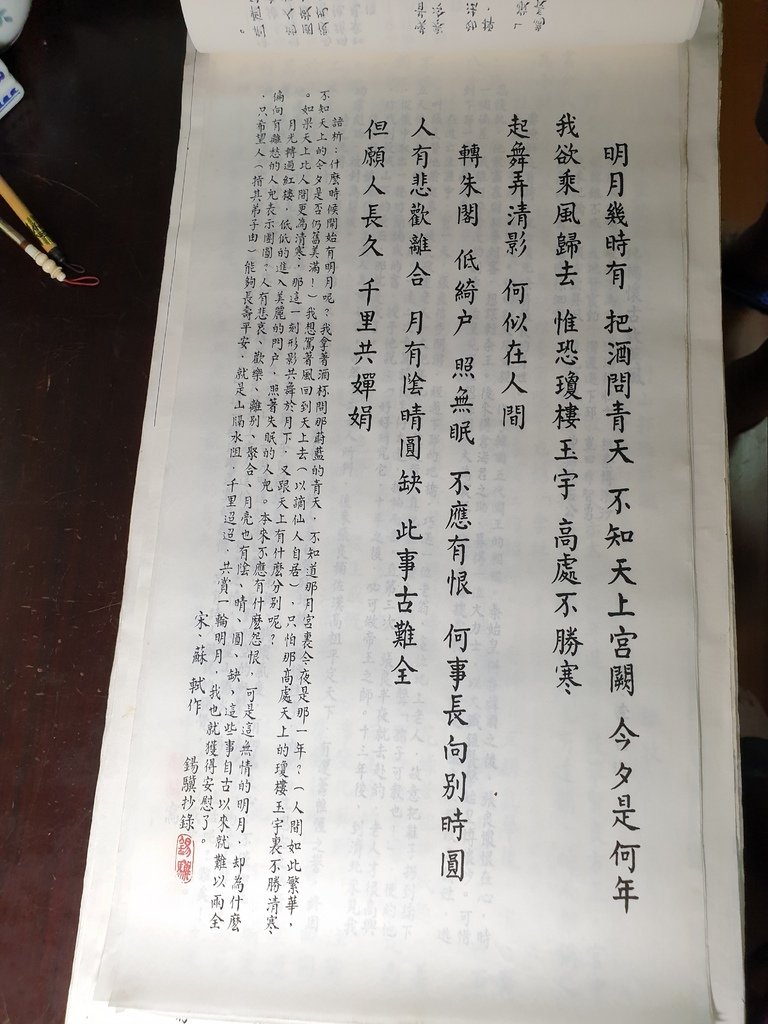 明月幾時有 把酒問青天 不知天上宮闕 今夕是何年
我欲乘風歸去 惟恐瓊樓玉宇 高處不勝寒
起舞弄清影 何似在人間
轉朱閣 低綺户 照無眠 不應有恨 何事長向別時圓
人有悲歡離合 月有陰晴圓缺 此事古難全
但願人長久 千里共嬋娟
語析：什麼時候開始有明月呢？我拿著酒杯問那蔚藍的青天，不知道那月宮裏今夜是那一年？（人間如此繁華，
不知天上的今夕是否仍舊美滿！）我想駕著風回到天上去（以謫仙人自居），只怕那高處天上的瓊樓玉宇裏不勝清寒
。如果天上比人間更為清寒，那這一刻形影共舞於月下，又跟天上有什麼分別呢？
月光轉過紅樓，低低的進入美麗的門户，照著失眠的人兒。本來不應有什麼怨恨，可是這無情的明月，却為什麼
偏向有離愁的人兒表示團圓？人有悲哀、歡樂、離別、聚合、月亮也有陰、晴、圓、缺，這些事自古以來就難以兩全
，只希望人（指其弟子由）能夠長壽平安，就是山隔水阻，千里迢迢，共賞一輪明月，我也就獲得安慰了。
宋、蘇軾作
錫驥抄錄